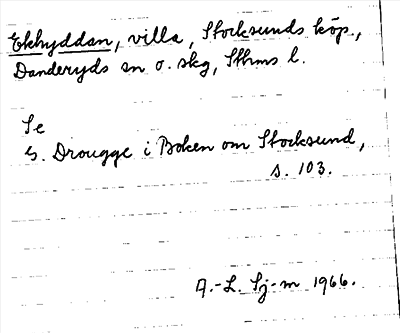 Ekhyddan, villa, Stocksunds köp.,
Danderyds sn o. skg, Sthms l.
Se
G. Drougge i Boken om Stocksund,
s. 103.
A.-L. Sj-m 1966.